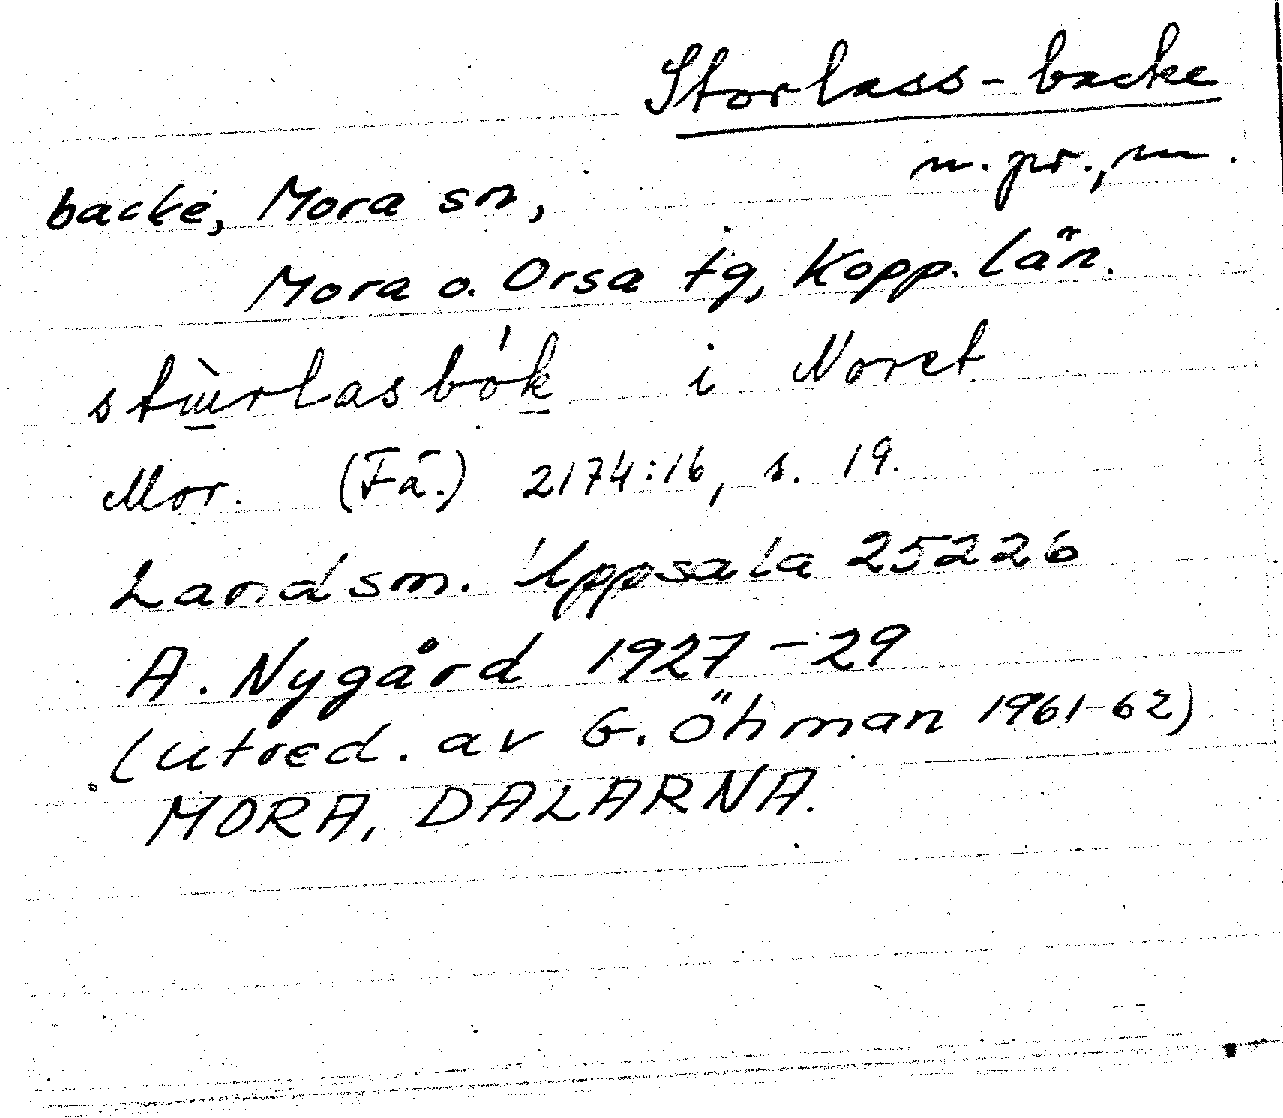 Storlass-backe
n. pr., m.
backe, Mora sn,
Mora o. Orsa tg, Kopp. län.
i Noret
Mor. (Fä.) 2174:16, s. 19.
Landsm. Uppsala 25226
A. Nygård 1927-29
(utred. av G. Öhman 1961-62)
MORA, DALARNA.